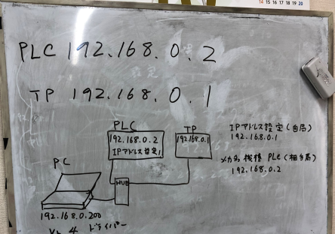 PLC 192.168.0.2
TP 192.168.0.1
PLC
192.168.0.2
IPアドレス設定
TP
192.168.0.1
IPアドレス設定(自局)
192.168.0.1
接続 PLC(相手局)
192.168.0.2
PC
HUB
192.168.0.200
ドライバー